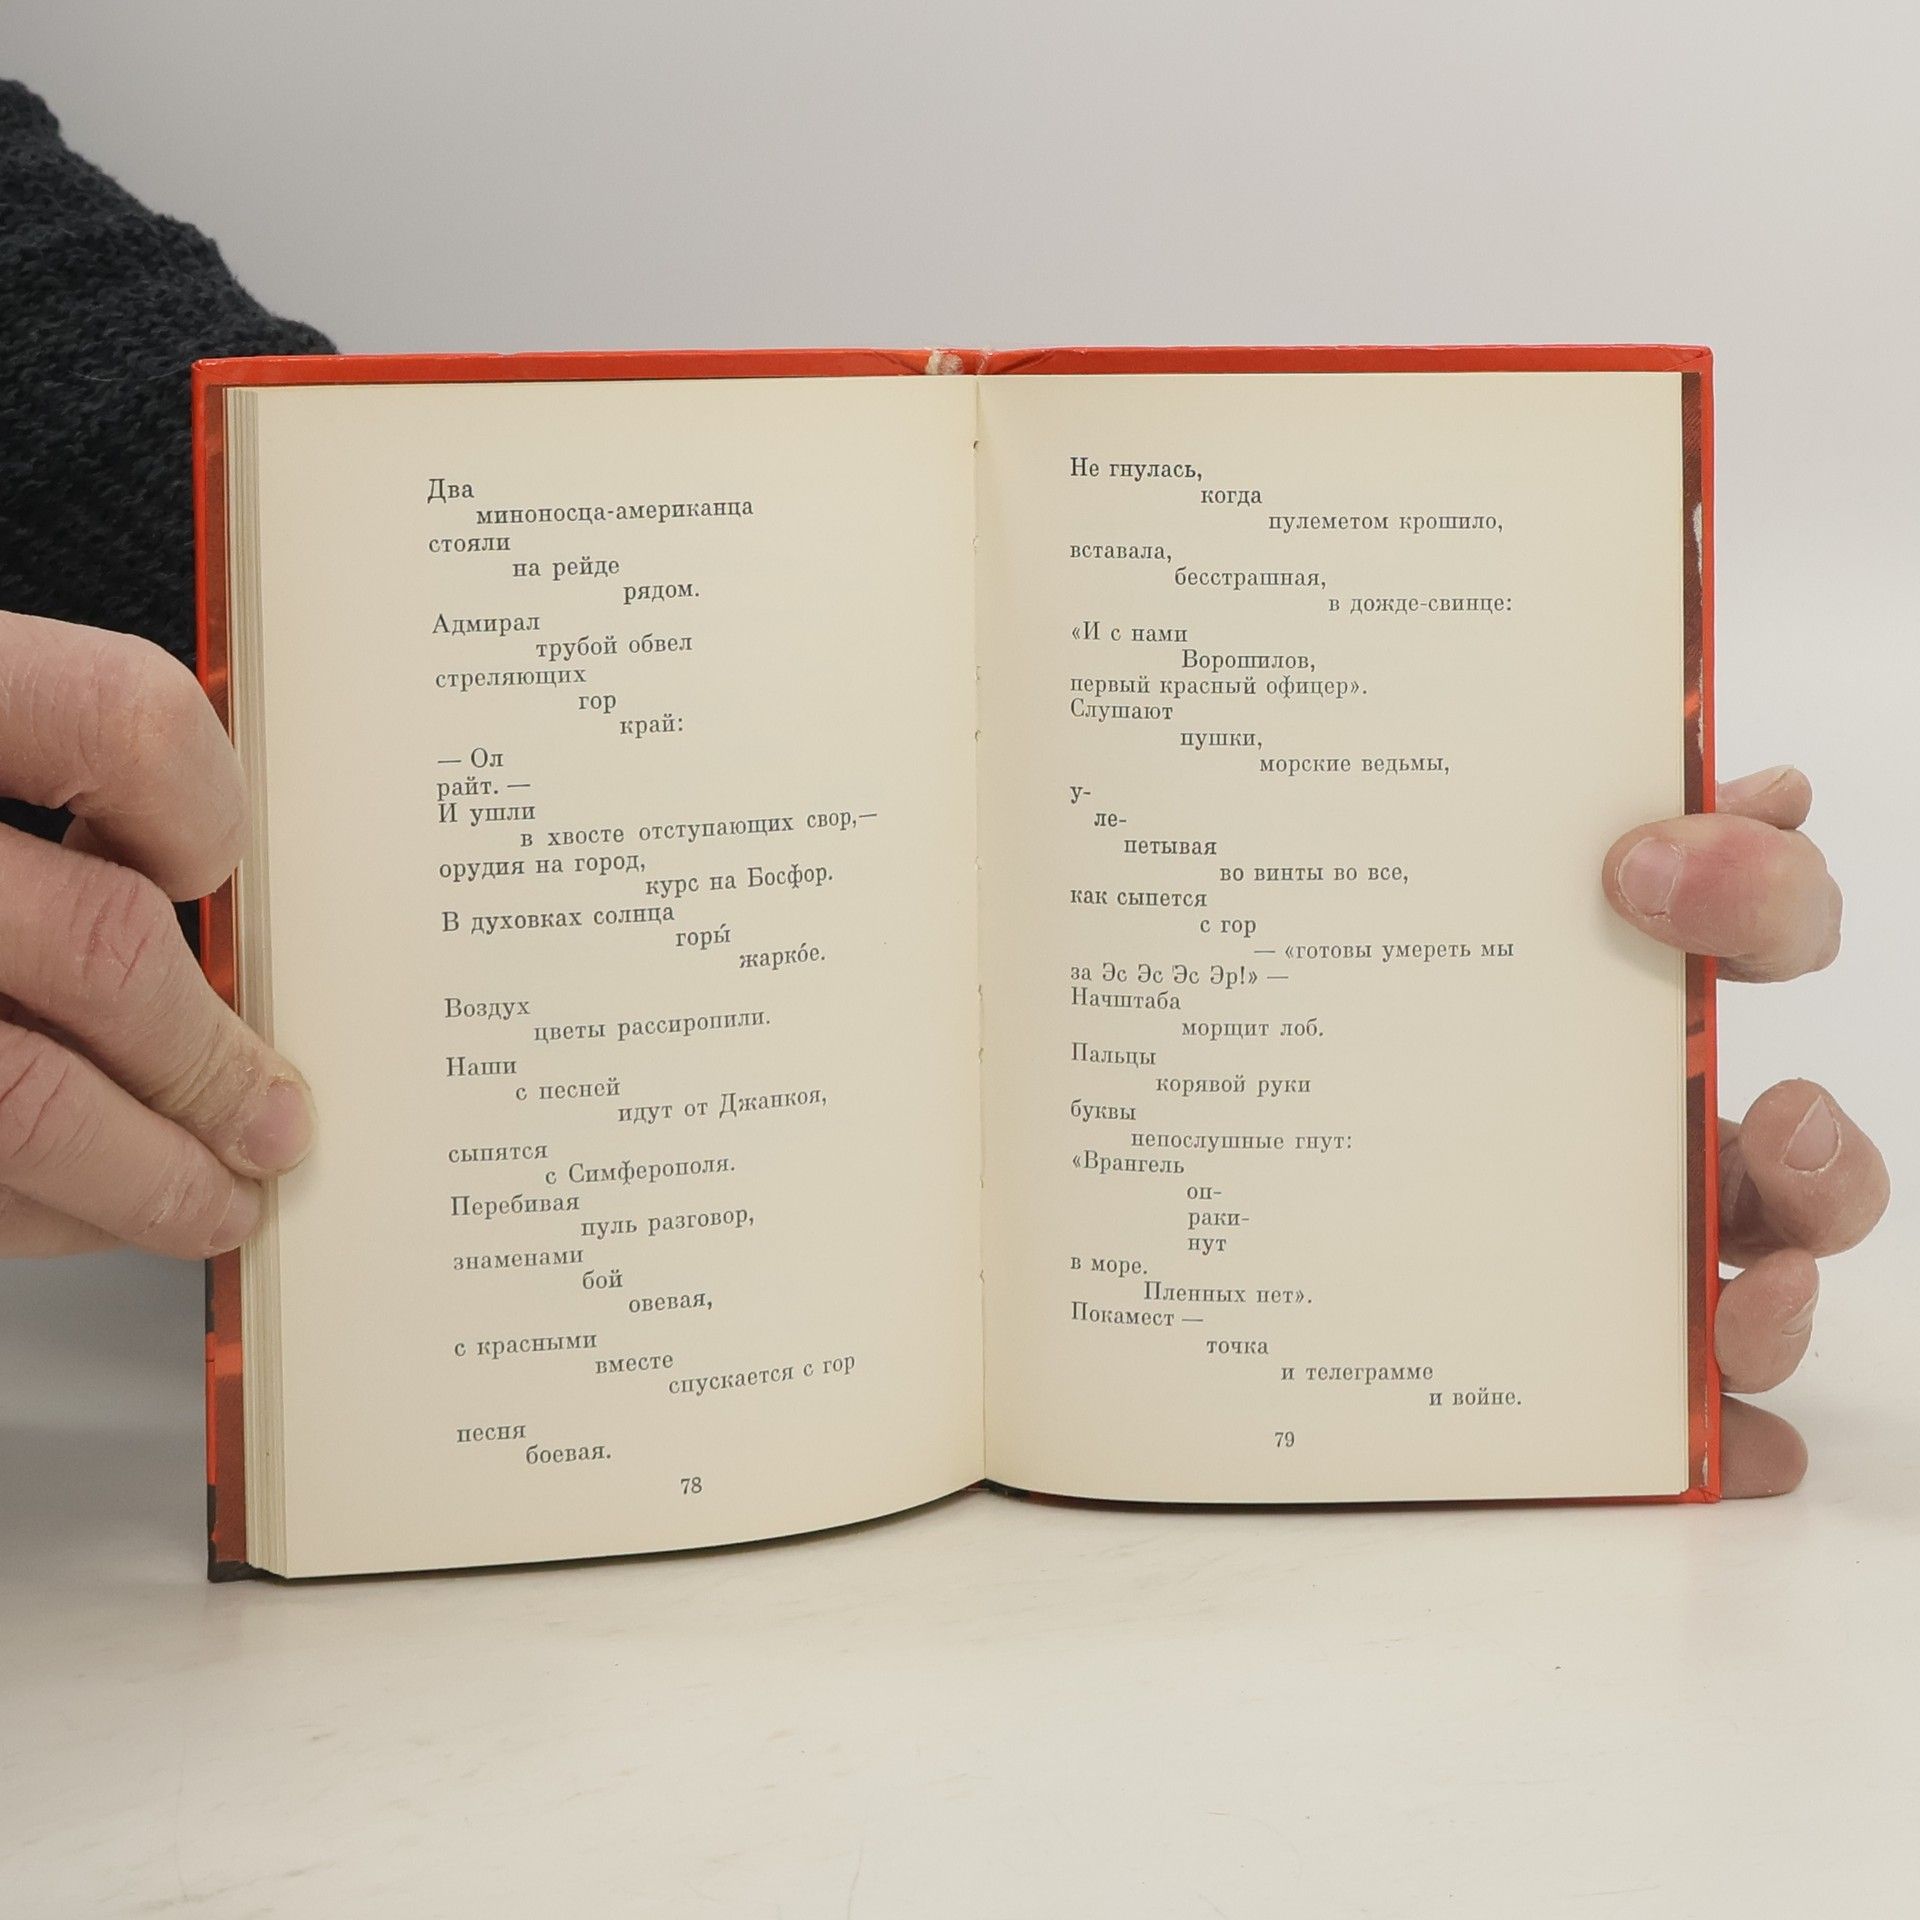 Два
миноносца-американца
стояли
на рейде
рядом.
Адмирал
трубой обвел
стреляющих
гор
край:
— Ол
райт. —
И ушли
в хвосте отступающих свор,—
орудия на город,
курс на Босфор.
В духовках солнца
горы́
жарко́е.
Воздух
цветы рассиропили.
Наши
с песней
идут от Джанкоя,
сыпятся
с Симферополя.
Перебивая
пуль разговор,
знаменами
бой
овевая,
с красными
вместе
спускается с гор
песня
боевая.
78
Не гнулась,
когда
пулеметом крошило,
вставала,
бесстрашная,
в дожде-свинце:
«И с нами
Ворошилов,
первый красный офицер».
Слушают
пушки,
морские ведьмы,
у-
ле-
петывая
во винты во все,
как сыпется
с гор
— «готовы умереть мы
за Эс Эс Эс Эр!» —
Начштаба
морщит лоб.
Пальцы
корявой руки
буквы
непослушные гнут:
«Врангель
оп-
раки-
нут
в море.
Пленных нет».
Покамест —
точка
и телеграмме
и войне.
79